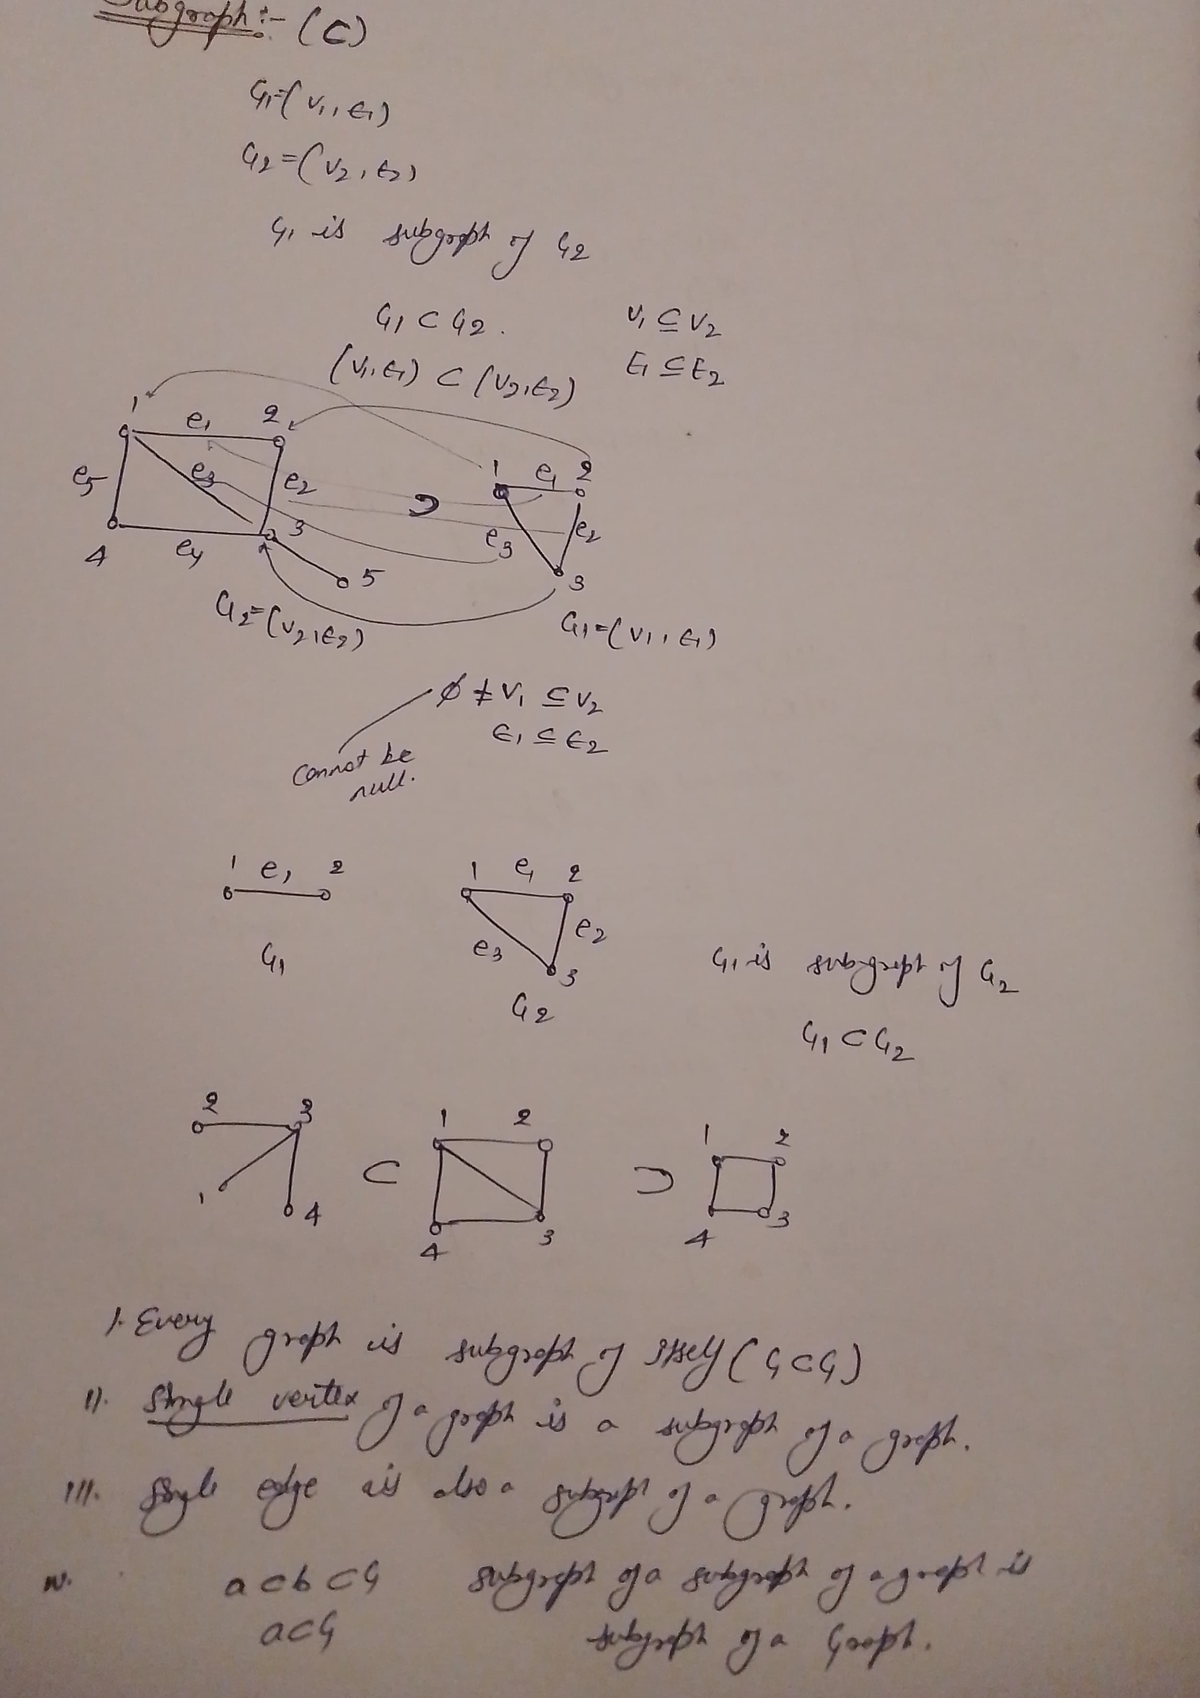 Subgraph:- (⊂)
G1=(V1, E1)
G2=(V2, E2)
G1 is subgraph of G2
G1 ⊂ G2.
V1 ⊆ V2
(V1, E1) ⊂ (V2, E2)
E1 ⊆ E2
1 e1 2
e5 e3 e2
4 e4 3
5
⊃
1 e1 2
e3 e2
3
G2=(V2, E2)
G1=(V1, E1)
∅ ≠ V1 ⊆ V2
E1 ⊆ E2
Cannot be
null.
1 e1 2
G1
1 e1 2
e3 e2
3
G2
G1 is subgraph of G2
G1 ⊂ G2
2 3
1 4
⊂
1 2
4 3
⊃
1 2
4 3
I. Every graph is subgraph of itself (G ⊂ G)
II. Single vertex of a graph is a subgraph of a graph.
III. Single edge is also a subgraph of a graph.
IV. a ⊂ b ⊂ G subgraph of a subgraph of a graph is
a ⊂ G subgraph of a Graph.